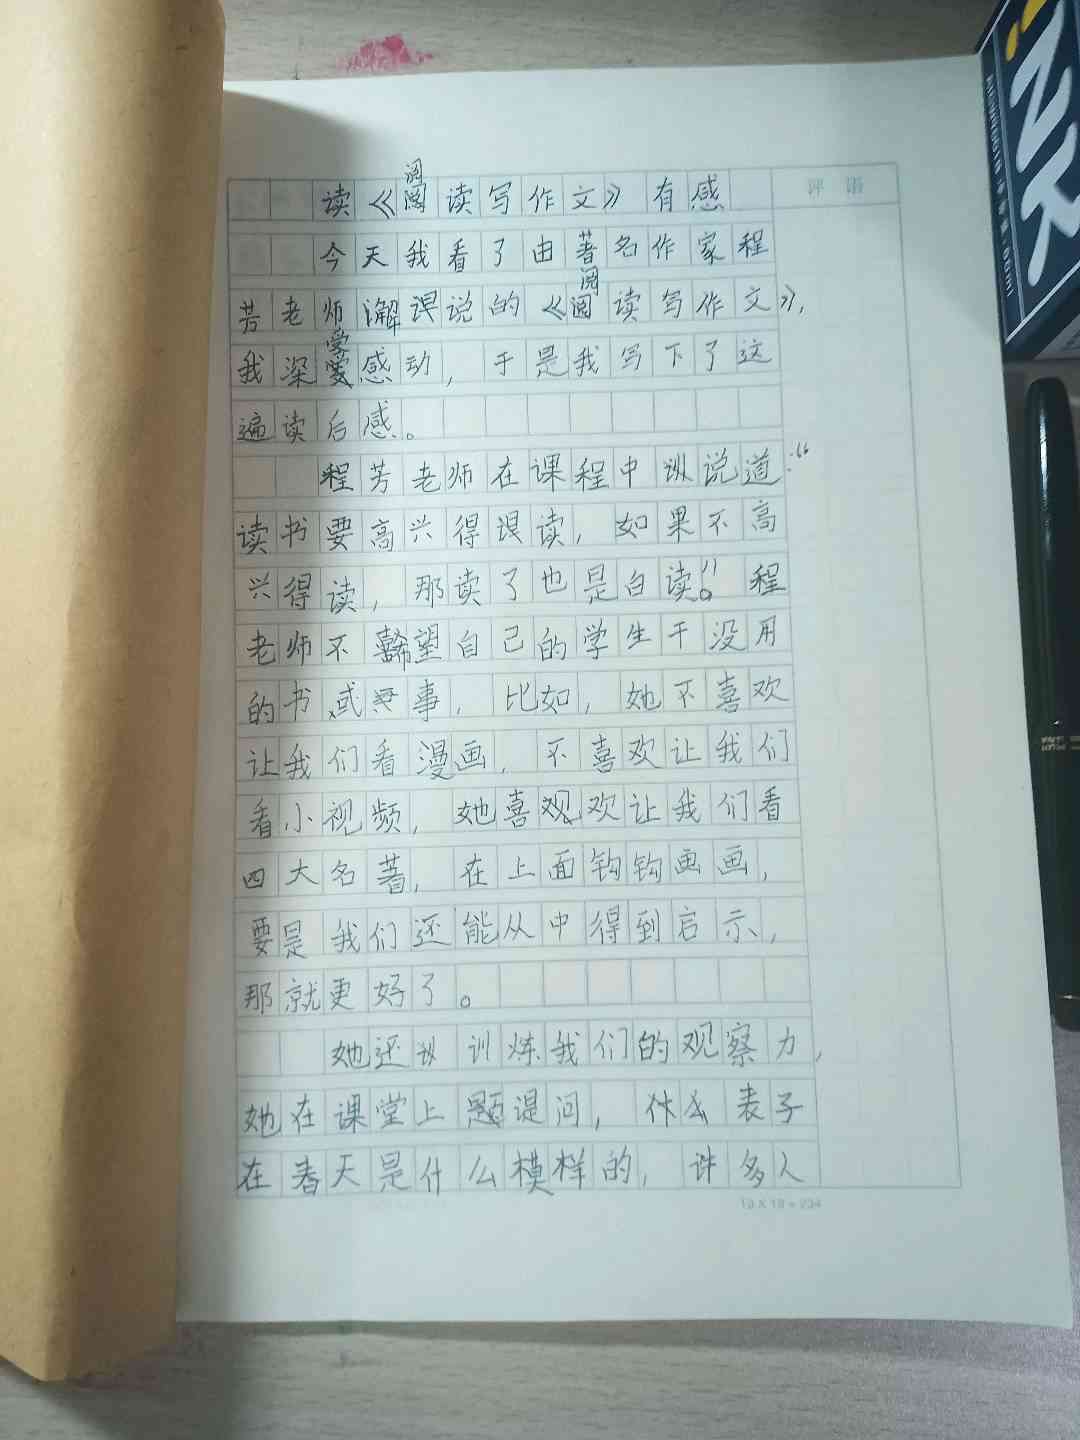 评语
读《阅读写作文》有感
今天我看了由著名作家程
芳老师讲说的《阅读写作文》，
我深受感动，于是我写下了这
遍读后感。
程芳老师在课程中说道：“
读书要高兴得读，如果不高
兴得读，那读了也是白读。”程
老师不希望自己的学生干没用
的书或事，比如，她不喜欢
让我们看漫画，不喜欢让我们
看小视频，她喜欢让我们看
四大名著，在上面钩钩画画，
要是我们还能从中得到启示，
那就更好了。
她还训炼我们的观察力，
她在课堂上提问，什么表子
在春天是什么模样的，许多人